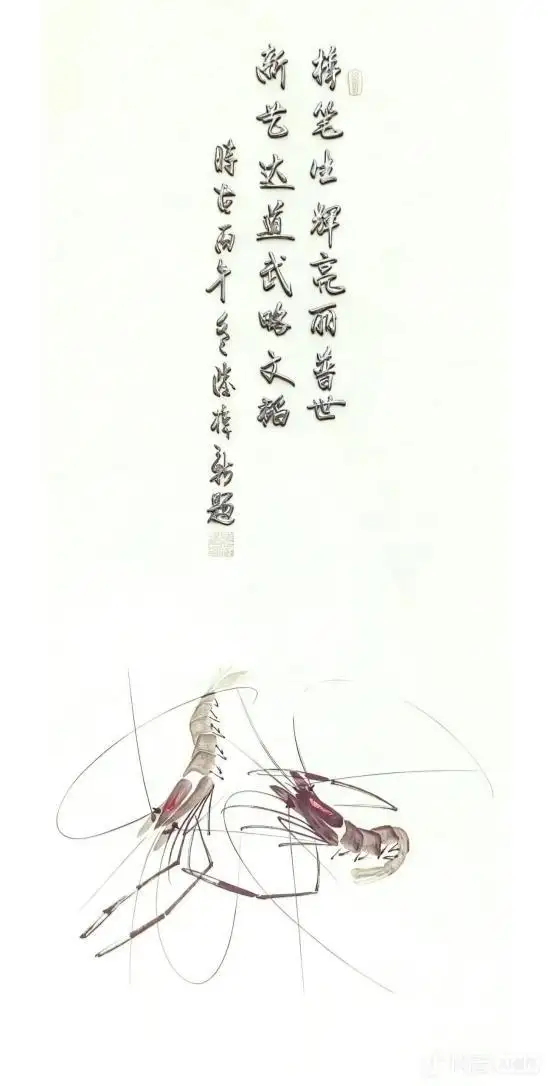 笔生辉亮丽普世
新艺达道武略文韬
時丙午冬新题